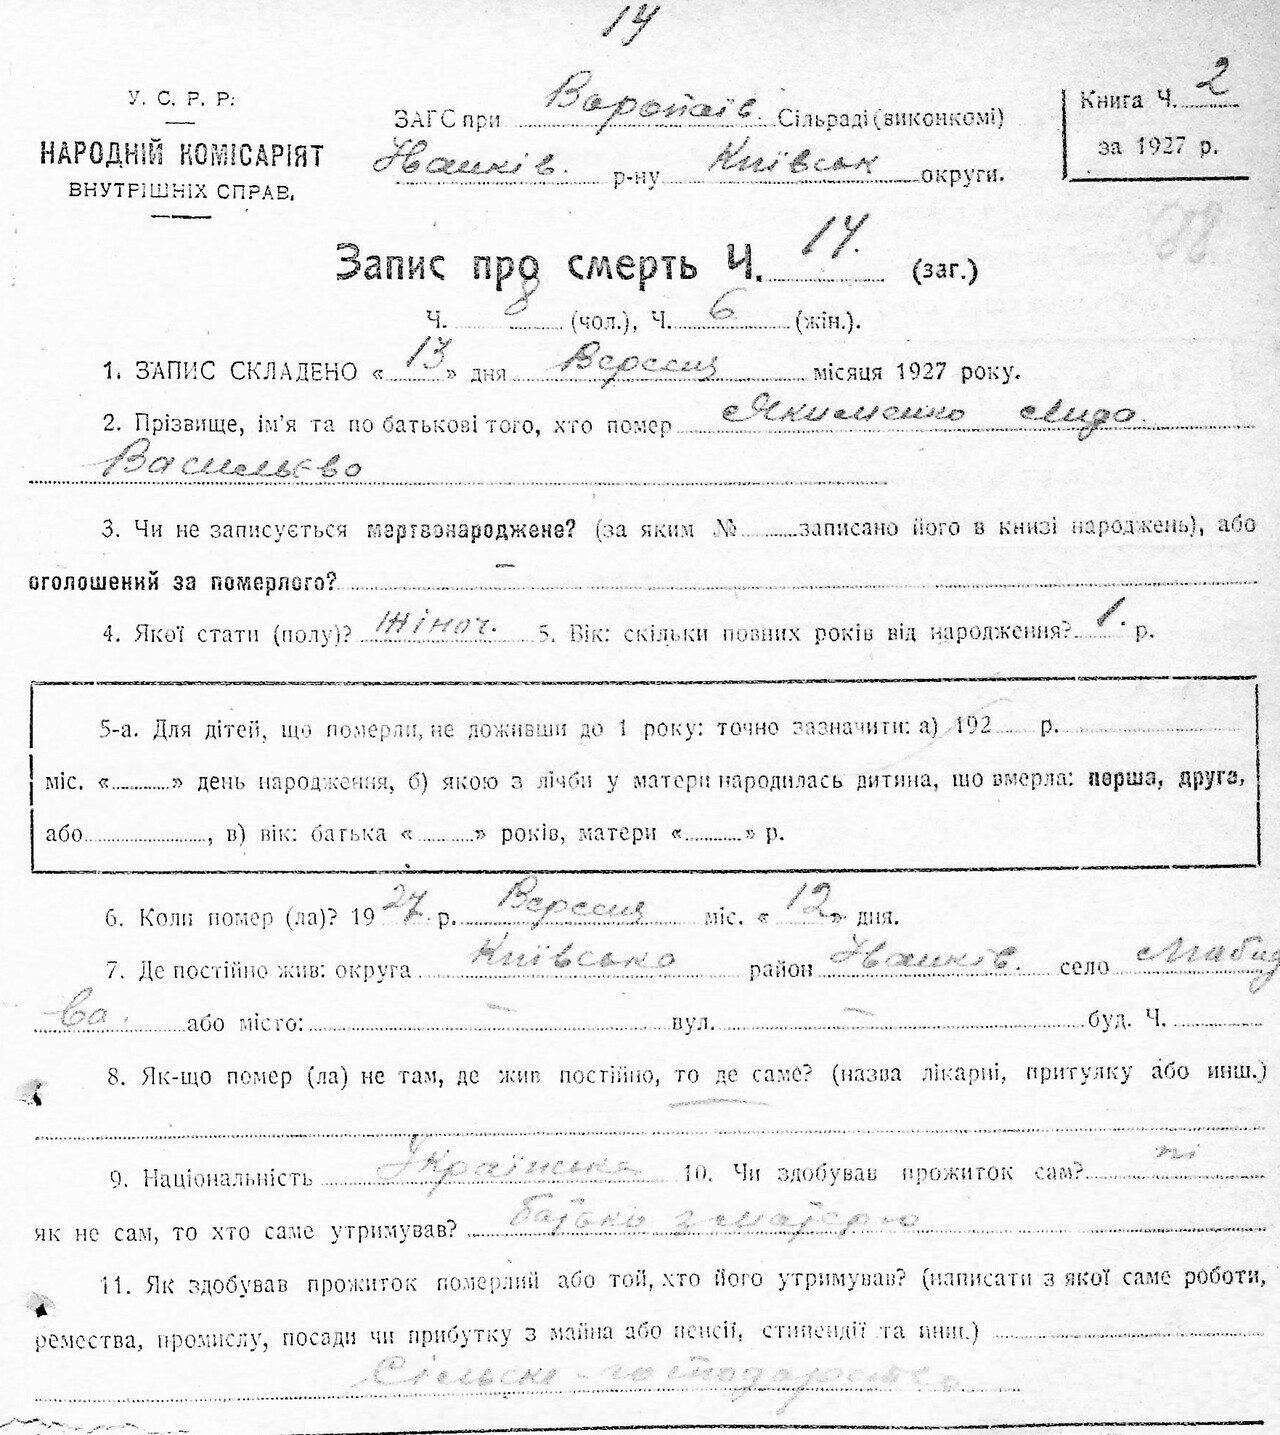 14
У. С. Р. Р.
НАРОДНІЙ КОМІСАРІЯТ
ВНУТРІШНІХ СПРАВ.
ЗАГС при Воропаїв. Сільраді (виконкомі)
Іванків. р-ну Київськ округи.
Книга Ч. 2
за 1927 р.
Запис про смерть Ч. 14. (заг.)
Ч. 8 (чол.), Ч. 6 (жін.).
1. ЗАПИС СКЛАДЕНО « 13 » дня Вересня місяця 1927 року.
2. Прізвище, ім'я та по батькові того, хто помер Якименко Лида.
Васильєво
3. Чи не записується мертвонароджене? (за яким № записано його в книзі народжень), або
оголошений за померлого? —
4. Якої стати (полу)? Жіноч. 5. Вік: скільки повних років від народження? 1. р.
5-а. Для дітей, що померли, не доживши до 1 року: точно зазначити: а) 192 р.
міс. « » день народження, б) якою з лічби у матери народилась дитина, що вмерла: перша, друга,
або , в) вік: батька « » років, матери « » р.
6. Коли помер (ла)? 1927 р. Вересня міс. « 12 » дня.
7. Де постійно жив: округа Київсько район Іванків. село
ва. або місто: — вул. — буд. Ч.
8. Як-що помер (ла) не там, де жив постійно, то де саме? (назва лікарні, притулку або инш.)
9. Національність Українська 10. Чи здобував прожиток сам? ні
як не сам, то хто саме утримував? батько з матерю
11. Як здобував прожиток померлий або той, хто його утримував? (написати з якої саме роботи,
ремества, промислу, посади чи прибутку з майна або пенсії, стипендії та инш.)
Сільске-господарство